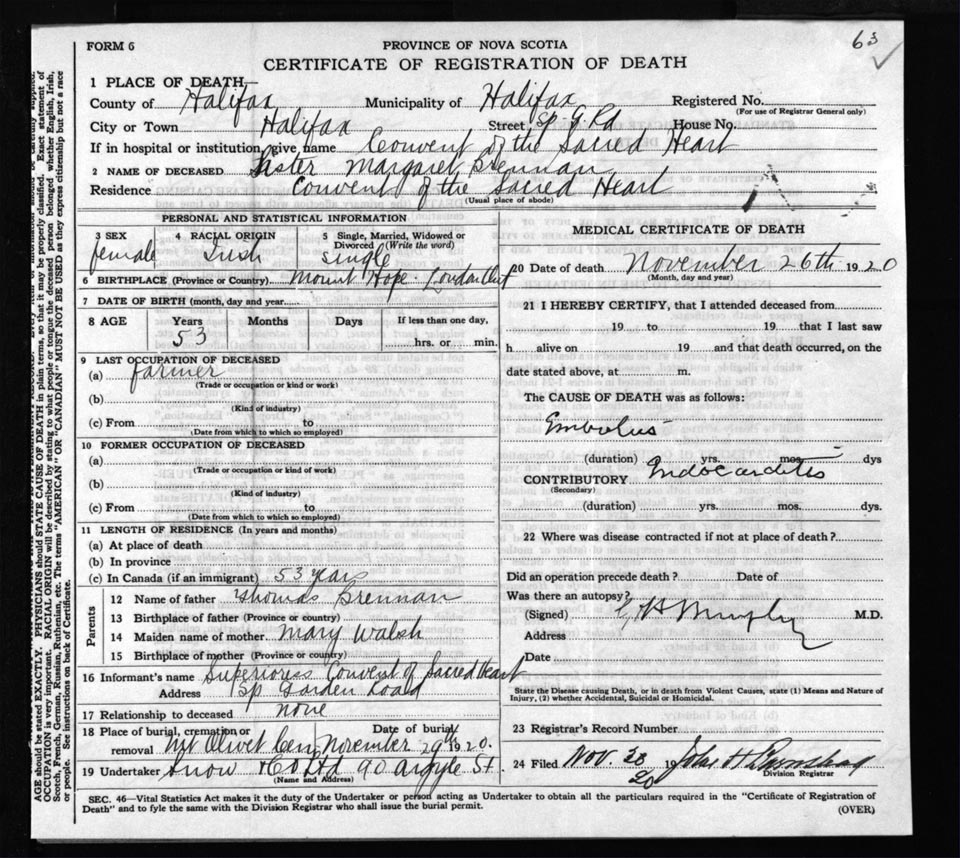 FORM 6
63 ✓
PROVINCE OF NOVA SCOTIA
CERTIFICATE OF REGISTRATION OF DEATH
1 PLACE OF DEATH—
County of Halifax Municipality of Halifax Registered No.
(For use of Registrar General only)
City or Town Halifax Street Sp G Rd House No.
If in hospital or institution, give name Convent of the Sacred Heart
2 NAME OF DECEASED Sister Margaret Brennan
Residence Convent of the Sacred Heart
(Usual place of abode)
PERSONAL AND STATISTICAL INFORMATION
3 SEX female
4 RACIAL ORIGIN Irish
5 Single, Married, Widowed or Divorced (Write the word) single
6 BIRTHPLACE (Province or Country) Mount Hope London Ont
7 DATE OF BIRTH (month, day and year)
8 AGE Years 53 Months Days If less than one day, hrs. or min.
9 LAST OCCUPATION OF DECEASED
(a) farmer
(Trade or occupation or kind or work)
(b)
(Kind of industry)
(c) From to
(Date from which to which so employed)
10 FORMER OCCUPATION OF DECEASED
(a)
(Trade or occupation or kind of work)
(b)
(Kind of industry)
(c) From to
(Date from which to which so employed)
11 LENGTH OF RESIDENCE (In years and months)
(a) At place of death
(b) In province
(c) In Canada (if an immigrant) 53 years
Parents
12 Name of father Thomas Brennan
13 Birthplace of father (Province or country)
14 Maiden name of mother Mary Walsh
15 Birthplace of mother (Province or country)
16 Informant's name Superioress Convent of Sacred Heart
Address Sp Garden Road
17 Relationship to deceased none
18 Place of burial, cremation or removal Mt Olivet Cem Date of burial November 29th 1920.
19 Undertaker Snow & Co Ltd 90 Argyle St.
(Name and Address)
MEDICAL CERTIFICATE OF DEATH
20 Date of death November 26th 1920
(Month, day and year)
21 I HEREBY CERTIFY, that I attended deceased from
19 to 19 that I last saw
h alive on 19 and that death occurred, on the
date stated above, at m.
The CAUSE OF DEATH was as follows:
Embolus
(duration) yrs. mos. dys
CONTRIBUTORY Endocarditis
(Secondary)
(duration) yrs. mos. dys.
22 Where was disease contracted if not at place of death?
Did an operation precede death? Date of
Was there an autopsy?
(Signed) G H Murphy M.D.
Address
Date
State the Disease causing Death, or in death from Violent Causes, state (1) Means and Nature of
Injury, (2) whether Accidental, Suicidal or Homicidal.
23 Registrar's Record Number
24 Filed Nov. 28 1920 John H
Division Registrar
SEC. 46—Vital Statistics Act makes it the duty of the Undertaker or person acting as Undertaker to obtain all the particulars required in the "Certificate of Registration of
Death" and to fyle the same with the Division Registrar who shall issue the burial permit.
(OVER)
AGE should be stated EXACTLY. PHYSICIANS should STATE CAUSE OF DEATH in plain terms, so that it may be properly classified. Exact statement of
OCCUPATION is very important. RACIAL ORIGIN will be described by stating to what people or tongue the deceased person belonged whether English, Irish,
Scotch, French, German, Russian, Ruthenian, etc. The terms "AMERICAN" OR "CANADIAN" MUST NOT BE USED as they express citizenship but not a race
or people. See instructions on back of Certificate.